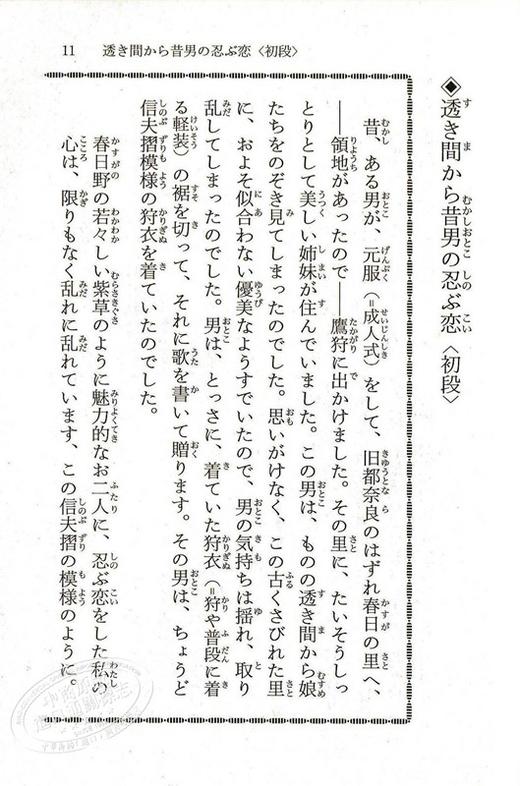 11　透き間から昔男の忍ぶ恋〈初段〉
◆透き間から昔男の忍ぶ恋〈初段〉
昔、ある男が、元服（＝成人式）をして、旧都奈良のはずれ春日の里へ、
――領地があったので――鷹狩に出かけました。その里に、たいそうしっ
とりとして美しい姉妹が住んでいました。この男は、ものの透き間から娘
たちをのぞき見てしまったのでした。思いがけなく、この古くさびれた里
に、およそ似合わない優美なようすでいたので、男の気持ちは揺れ、取り
乱してしまったのでした。男は、とっさに、着ていた狩衣（＝狩や普段に着
る軽装）の裾を切って、それに歌を書いて贈ります。その男は、ちょうど
信夫摺模様の狩衣を着ていたのでした。
春日野の若々しい紫草のように魅力的なお二人に、忍ぶ恋をした私の
心は、限りもなく乱れに乱れています、この信夫摺の模様のように。